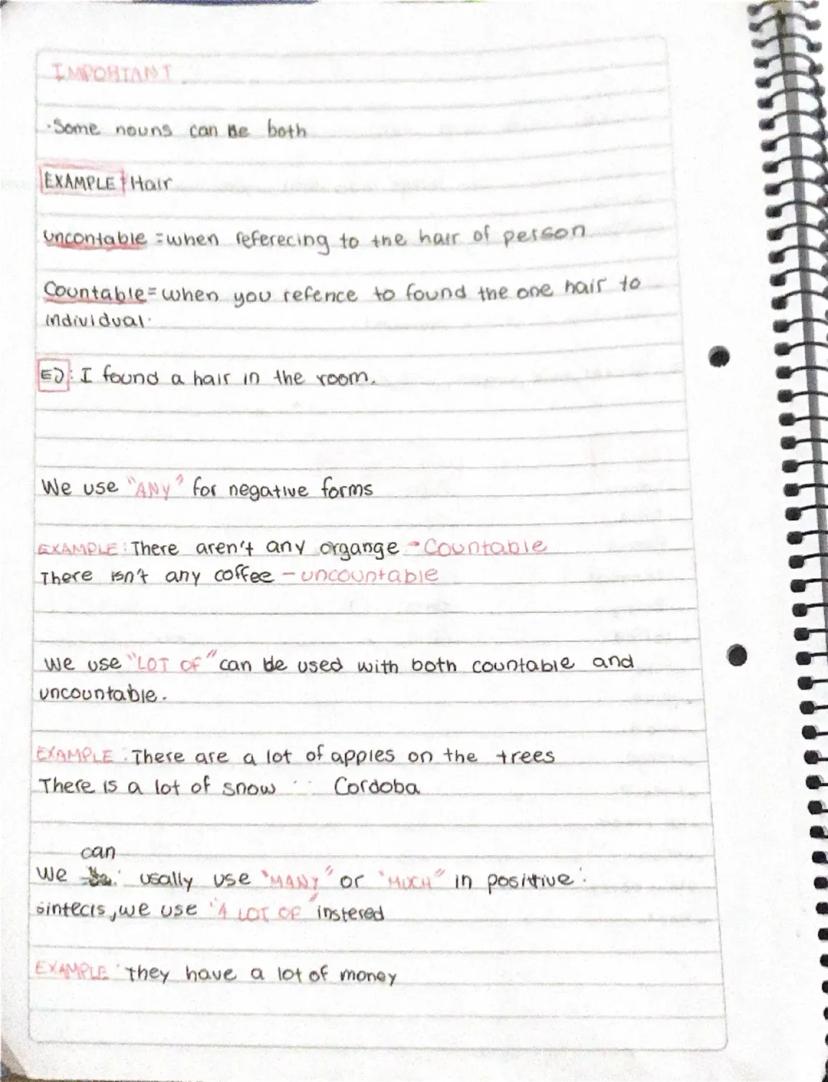 IMPORTANT.
·Some nouns can be both
EXAMPLE Hair
uncontable = when referecing to the hair of person
Countable = when you refence to found the one hair to
individual.
EJ: I found a hair in the room.
We use "ANY" for negative forms
EXAMPLE: There aren't any organge - Countable
There isn't any coffee - uncountable
We use "LOT OF" can be used with both countable and
uncountable.
EXAMPLE: There are a lot of apples on the trees
There is a lot of snow Cordoba
can
We usally use "MANY" or "MUCH" in positive
sintecis, we use "A LOT OF" instered
EXAMPLE: they have a lot of money